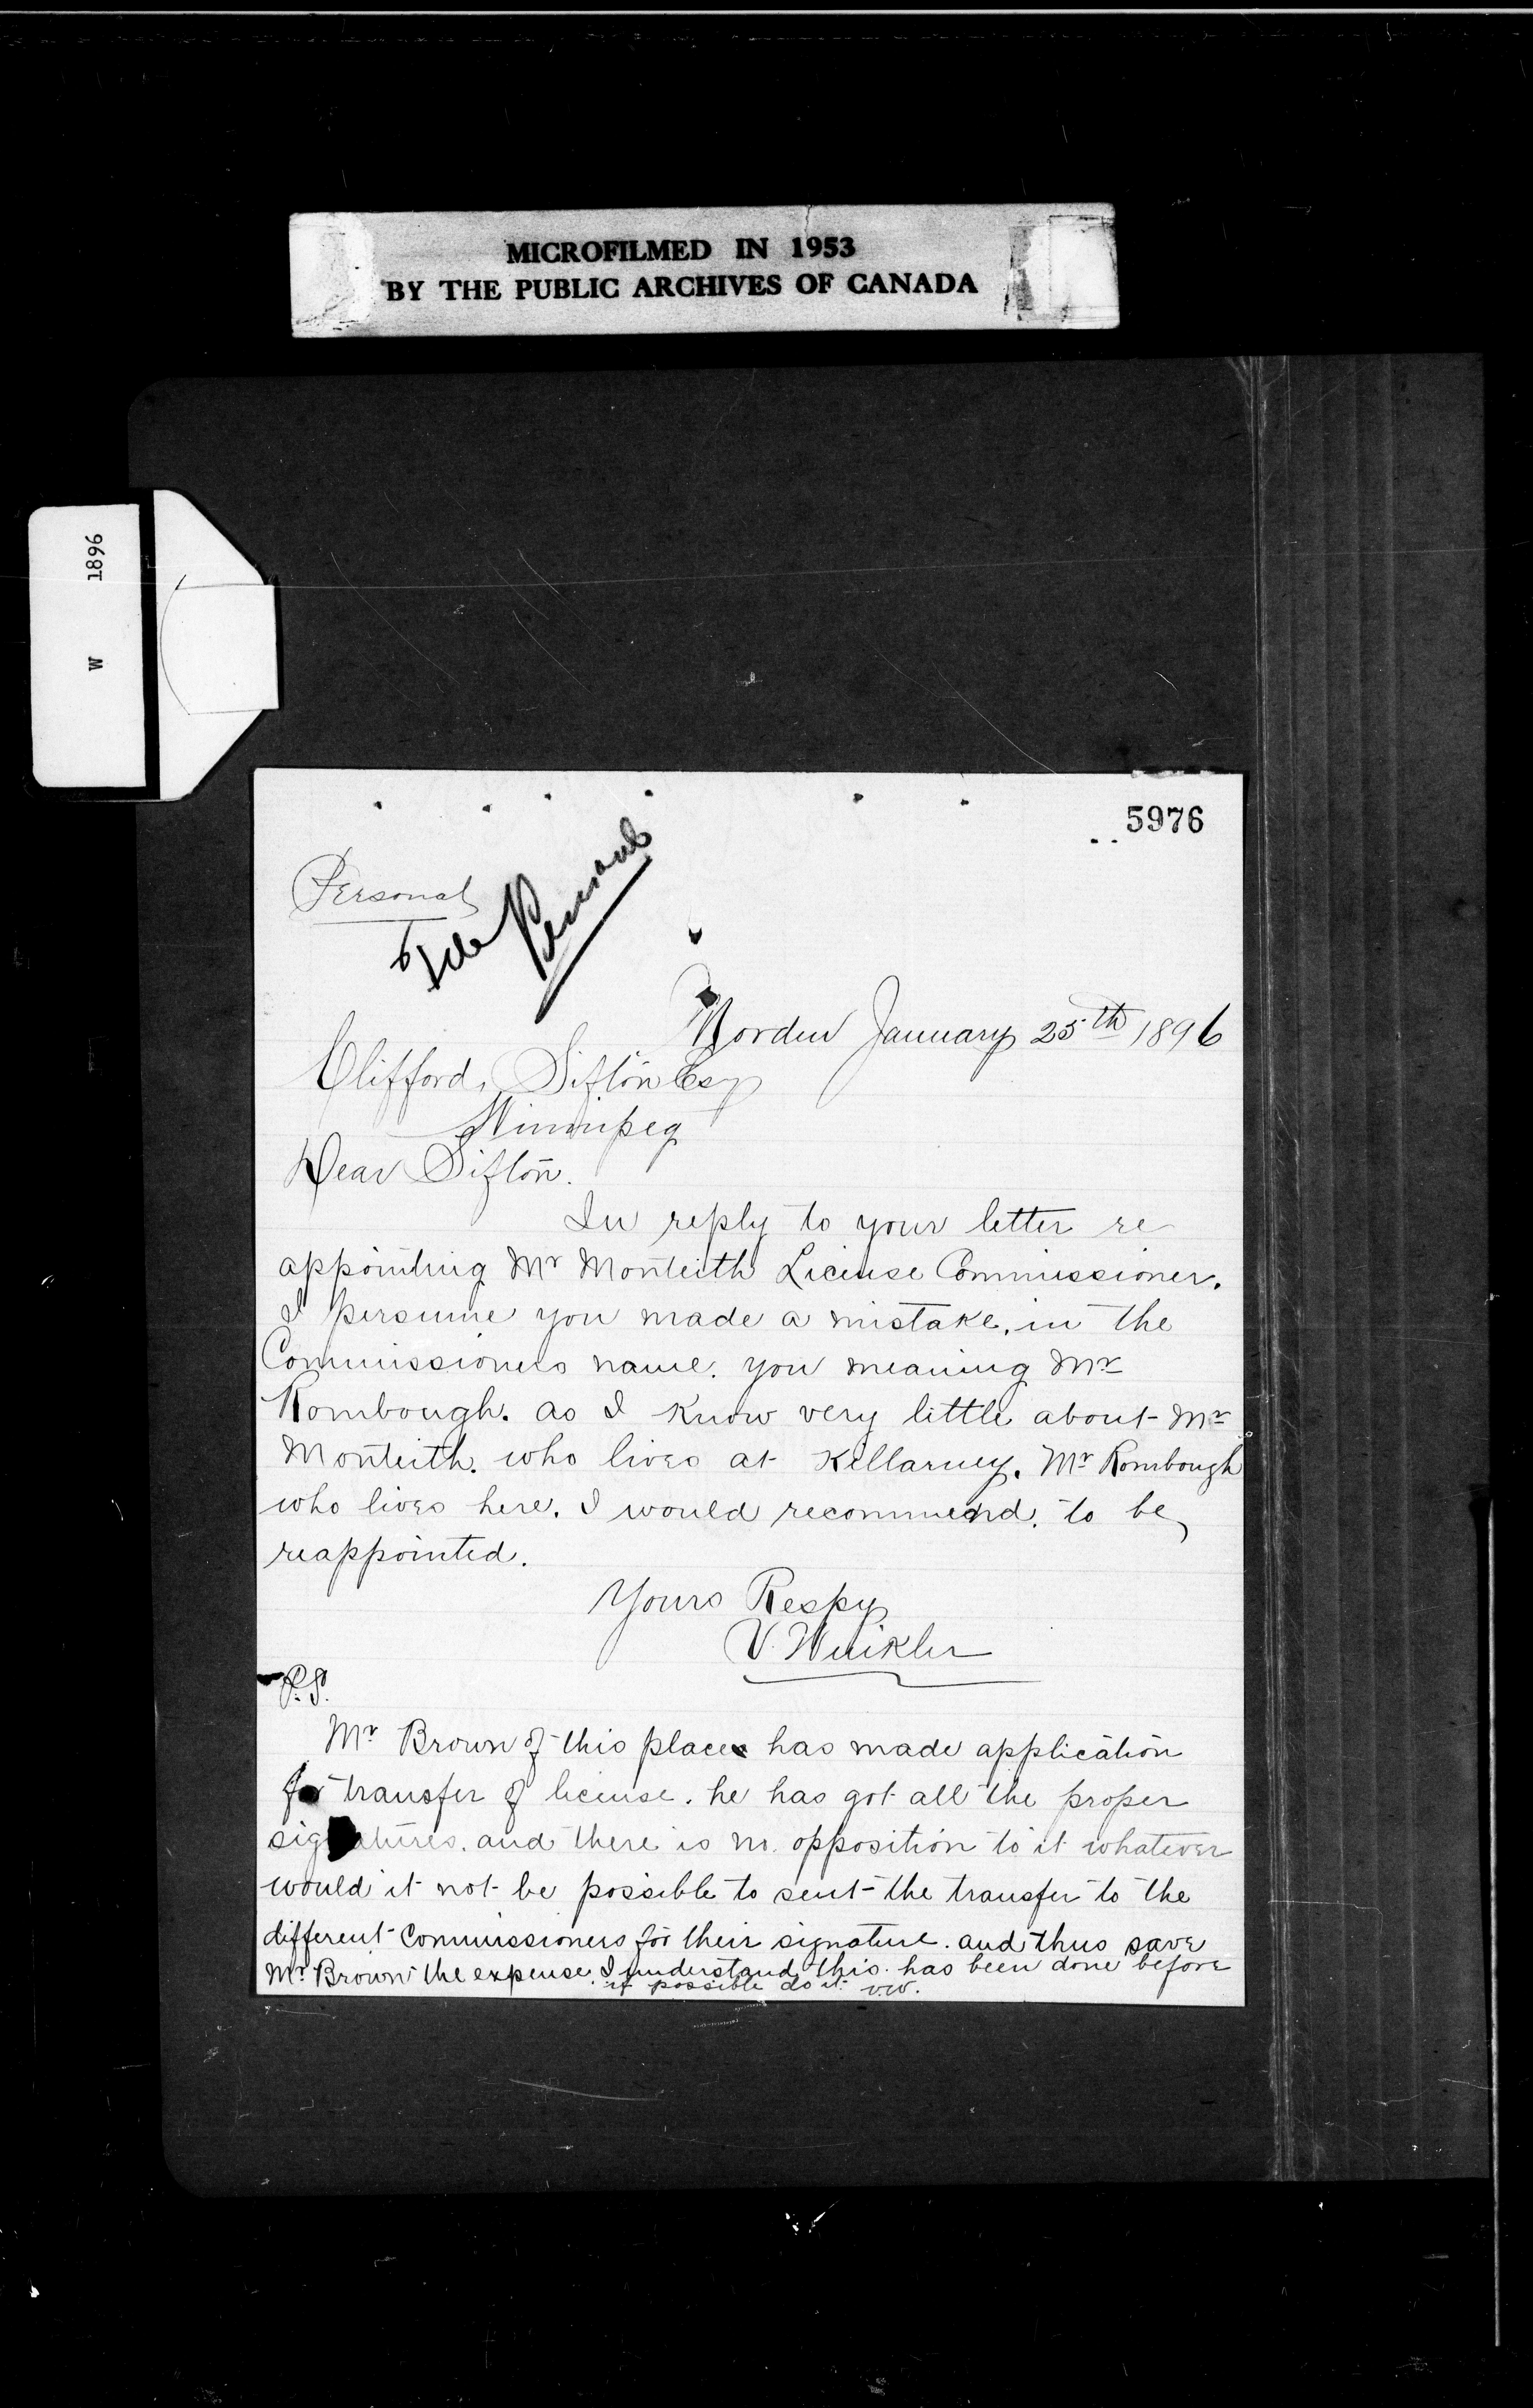 MICROFILMED IN 1953
BY THE PUBLIC ARCHIVES OF CANADA
W 1896
5976
Personal
File Personal
Morden January 25th 1896
Clifford, Sifton Esq
Winnipeg
Dear Sifton.
In reply to your letter re
appointing Mr Monteith License Commissioner.
I persume you made a mistake, in the
Commissioners name. you meaning Mr
Rombough. as I know very little about Mr
Monteith. who lives at Killarney. Mr Rombough
who lives here. I would recommend. to be
reappointed.
Yours Respy
V. Winkler
P.S.
Mr Brown of this place has made application
for transfer of license. he has got all the proper
signatures. and there is no. opposition to it whatever
would it not be possible to sent the transfer to the
different Commissioners for their signature. and thus save
Mr Brown the expense. I understand this has been done before
if possible do it V.W.